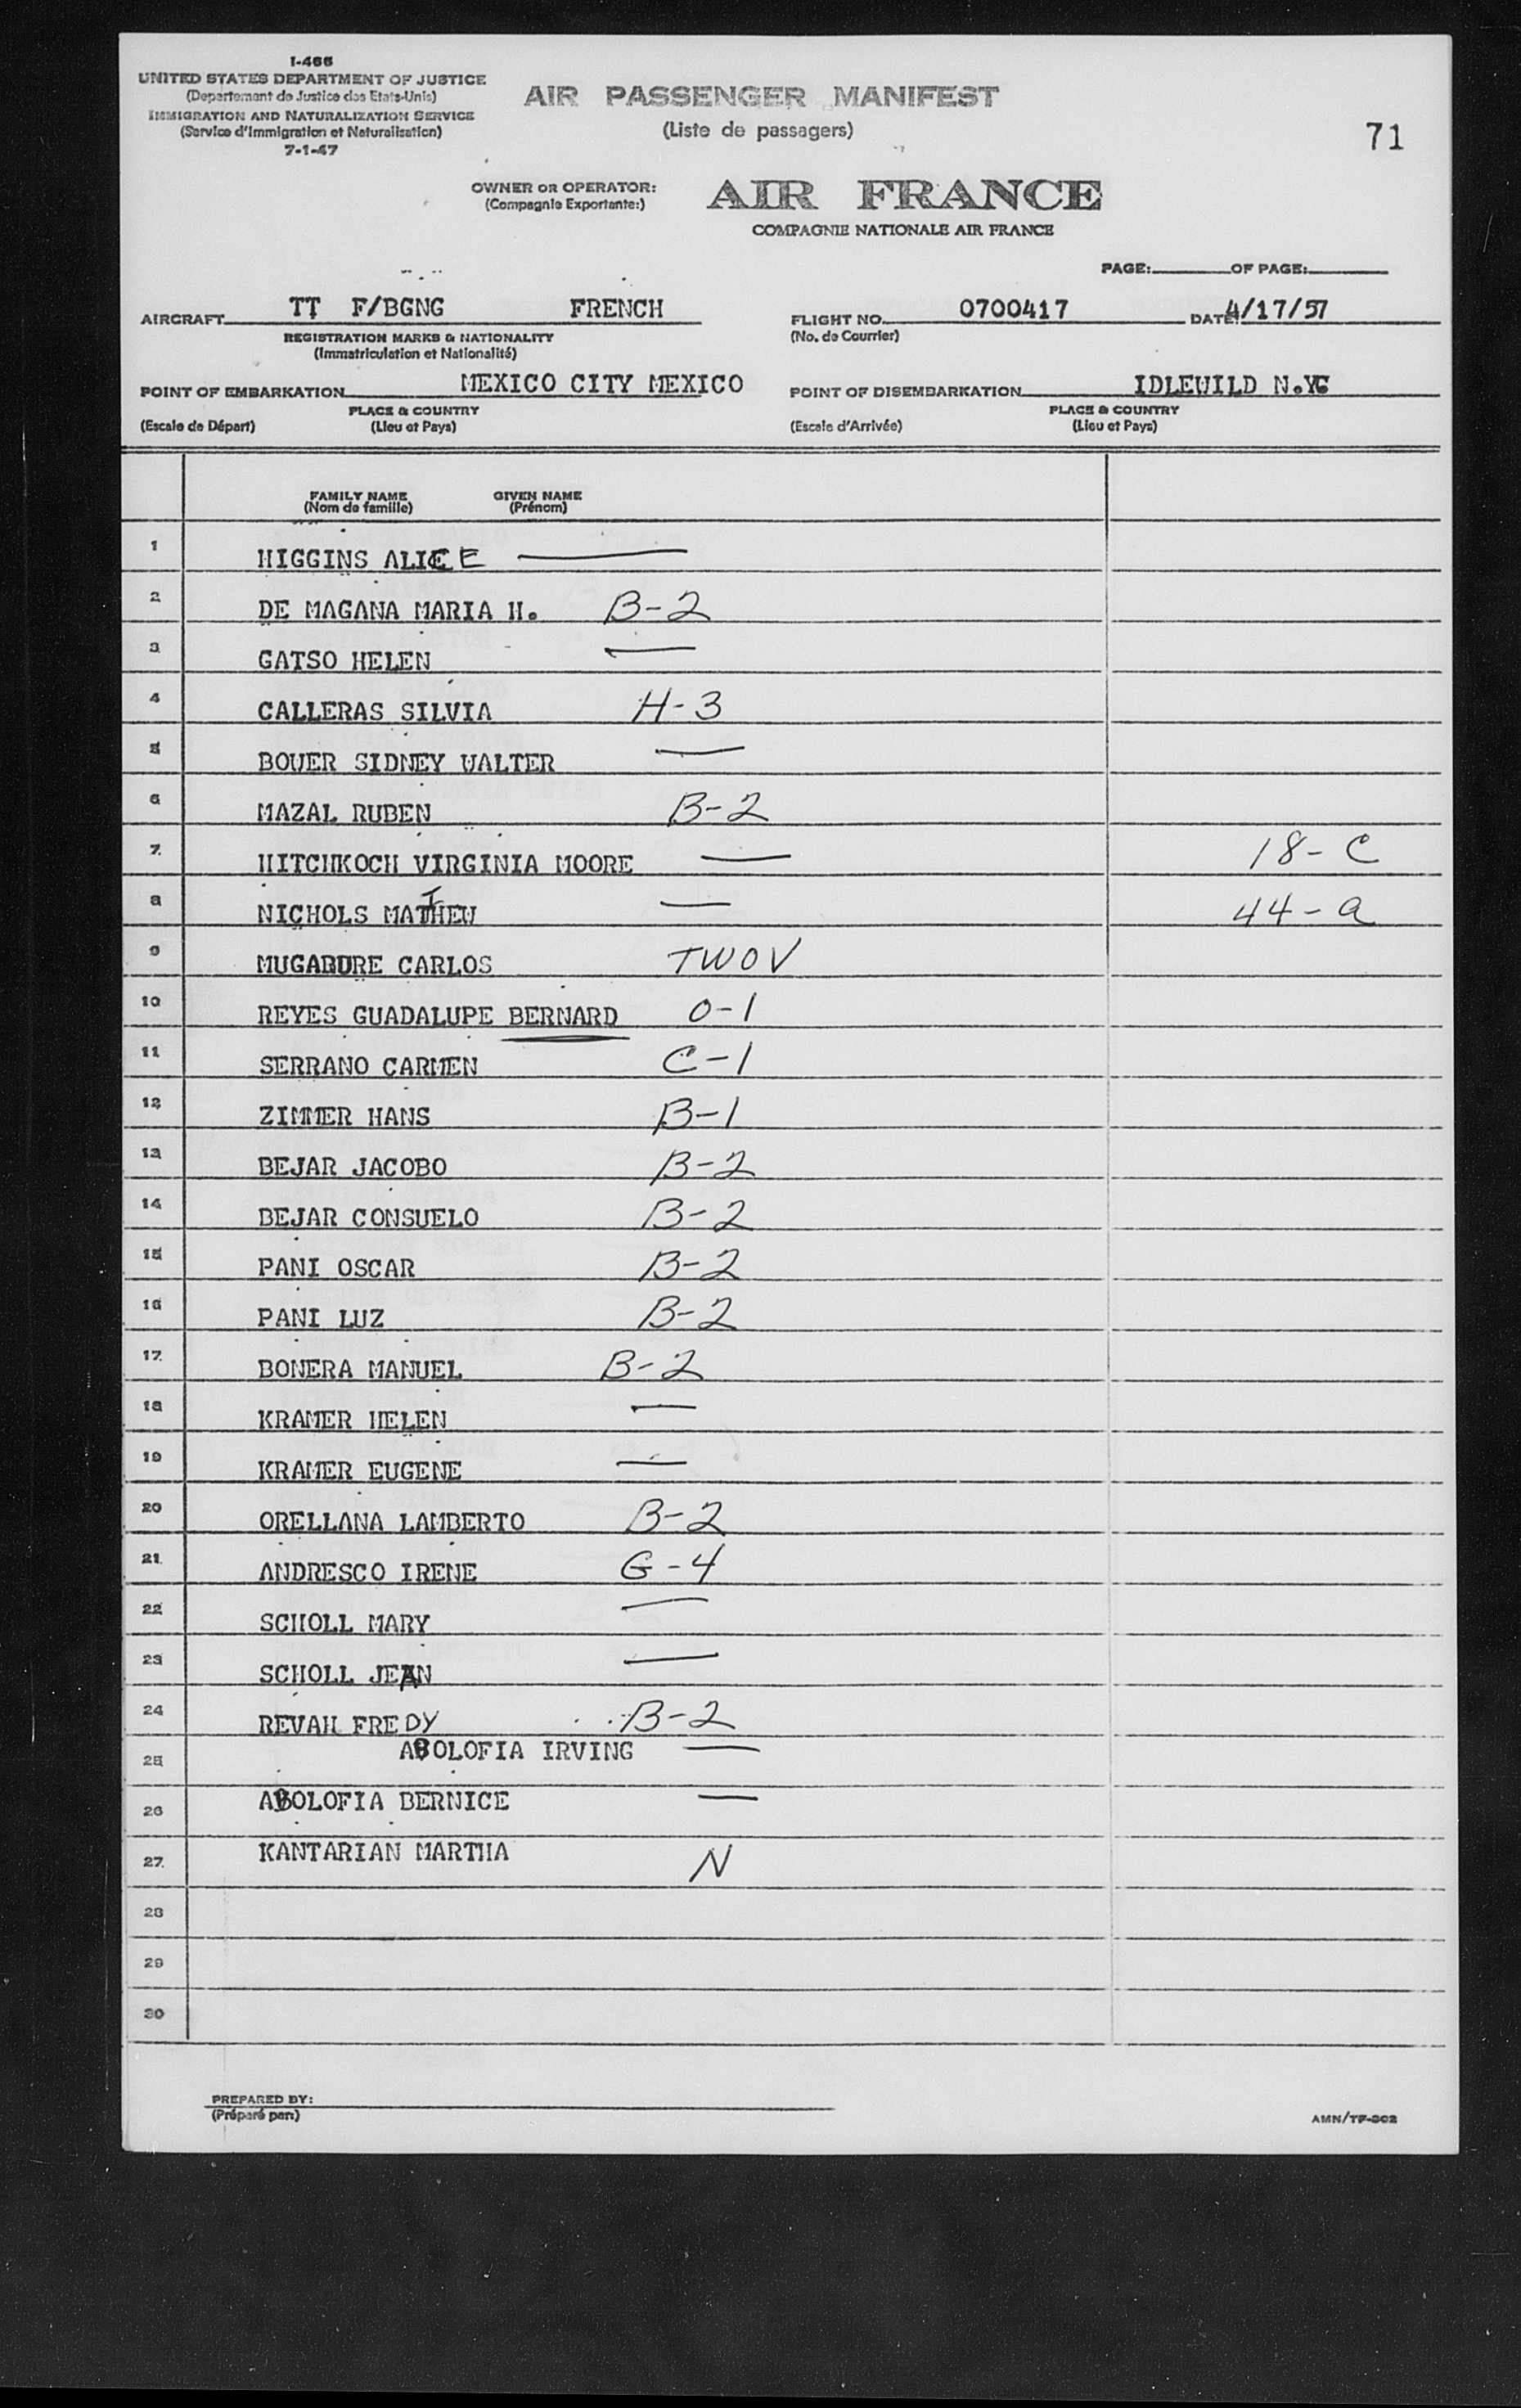 I-466
UNITED STATES DEPARTMENT OF JUSTICE
(Departement de Justice des Etats-Unis)
IMMIGRATION AND NATURALIZATION SERVICE
(Service d'Immigration et Naturalisation)
7-1-47
AIR PASSENGER MANIFEST
(Liste de passagers)
71
OWNER OR OPERATOR:
(Compagnie Exportante:)
AIR FRANCE
COMPAGNIE NATIONALE AIR FRANCE
PAGE: OF PAGE:
AIRCRAFT TT F/BGNG FRENCH
REGISTRATION MARKS & NATIONALITY
(Immatriculation et Nationalité)
FLIGHT NO. 0700417 DATE: 4/17/57
(No. de Courrier)
POINT OF EMBARKATION MEXICO CITY MEXICO
PLACE & COUNTRY
(Escale de Départ) (Lieu et Pays)
POINT OF DISEMBARKATION IDLEWILD
PLACE & COUNTRY
(Escale d'Arrivée) (Lieu et Pays)
FAMILY NAME GIVEN NAME
(Nom de famille) (Prénom)
1 HIGGINS ALICE —
2 DE MAGANA MARIA H. B-2
3 GATSO HELEN —
4 CALLERAS SILVIA H-3
5 BOWER SIDNEY WALTER —
6 MAZAL RUBEN B-2
7 HITCHKOCH VIRGINIA MOORE — 18-C
8 NICHOLS MATHEW — 44-a
9 MUGABURE CARLOS TWOV
10 REYES GUADALUPE BERNARD O-1
11 SERRANO CARMEN C-1
12 ZIMMER HANS B-1
13 BEJAR JACOBO B-2
14 BEJAR CONSUELO B-2
15 PANI OSCAR B-2
16 PANI LUZ B-2
17 BONERA MANUEL B-2
18 KRAMER HELEN —
19 KRAMER EUGENE —
20 ORELLANA LAMBERTO B-2
21 ANDRESCO IRENE G-4
22 SCHOLL MARY —
23 SCHOLL JEAN —
24 REVAH FREDY B-2
25 ABOLOFIA IRVING —
26 ABOLOFIA BERNICE —
27 KANTARIAN MARTHA N
28
29
30
PREPARED BY:
(Préparé par:)
AMN/TF-302